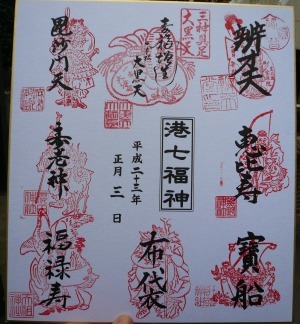 毘沙門天
大黒天
三神具足
大黒天
恵比寿
港七福神
平成二十三年
正月三日
寿老神
寶船
布袋
福禄寿